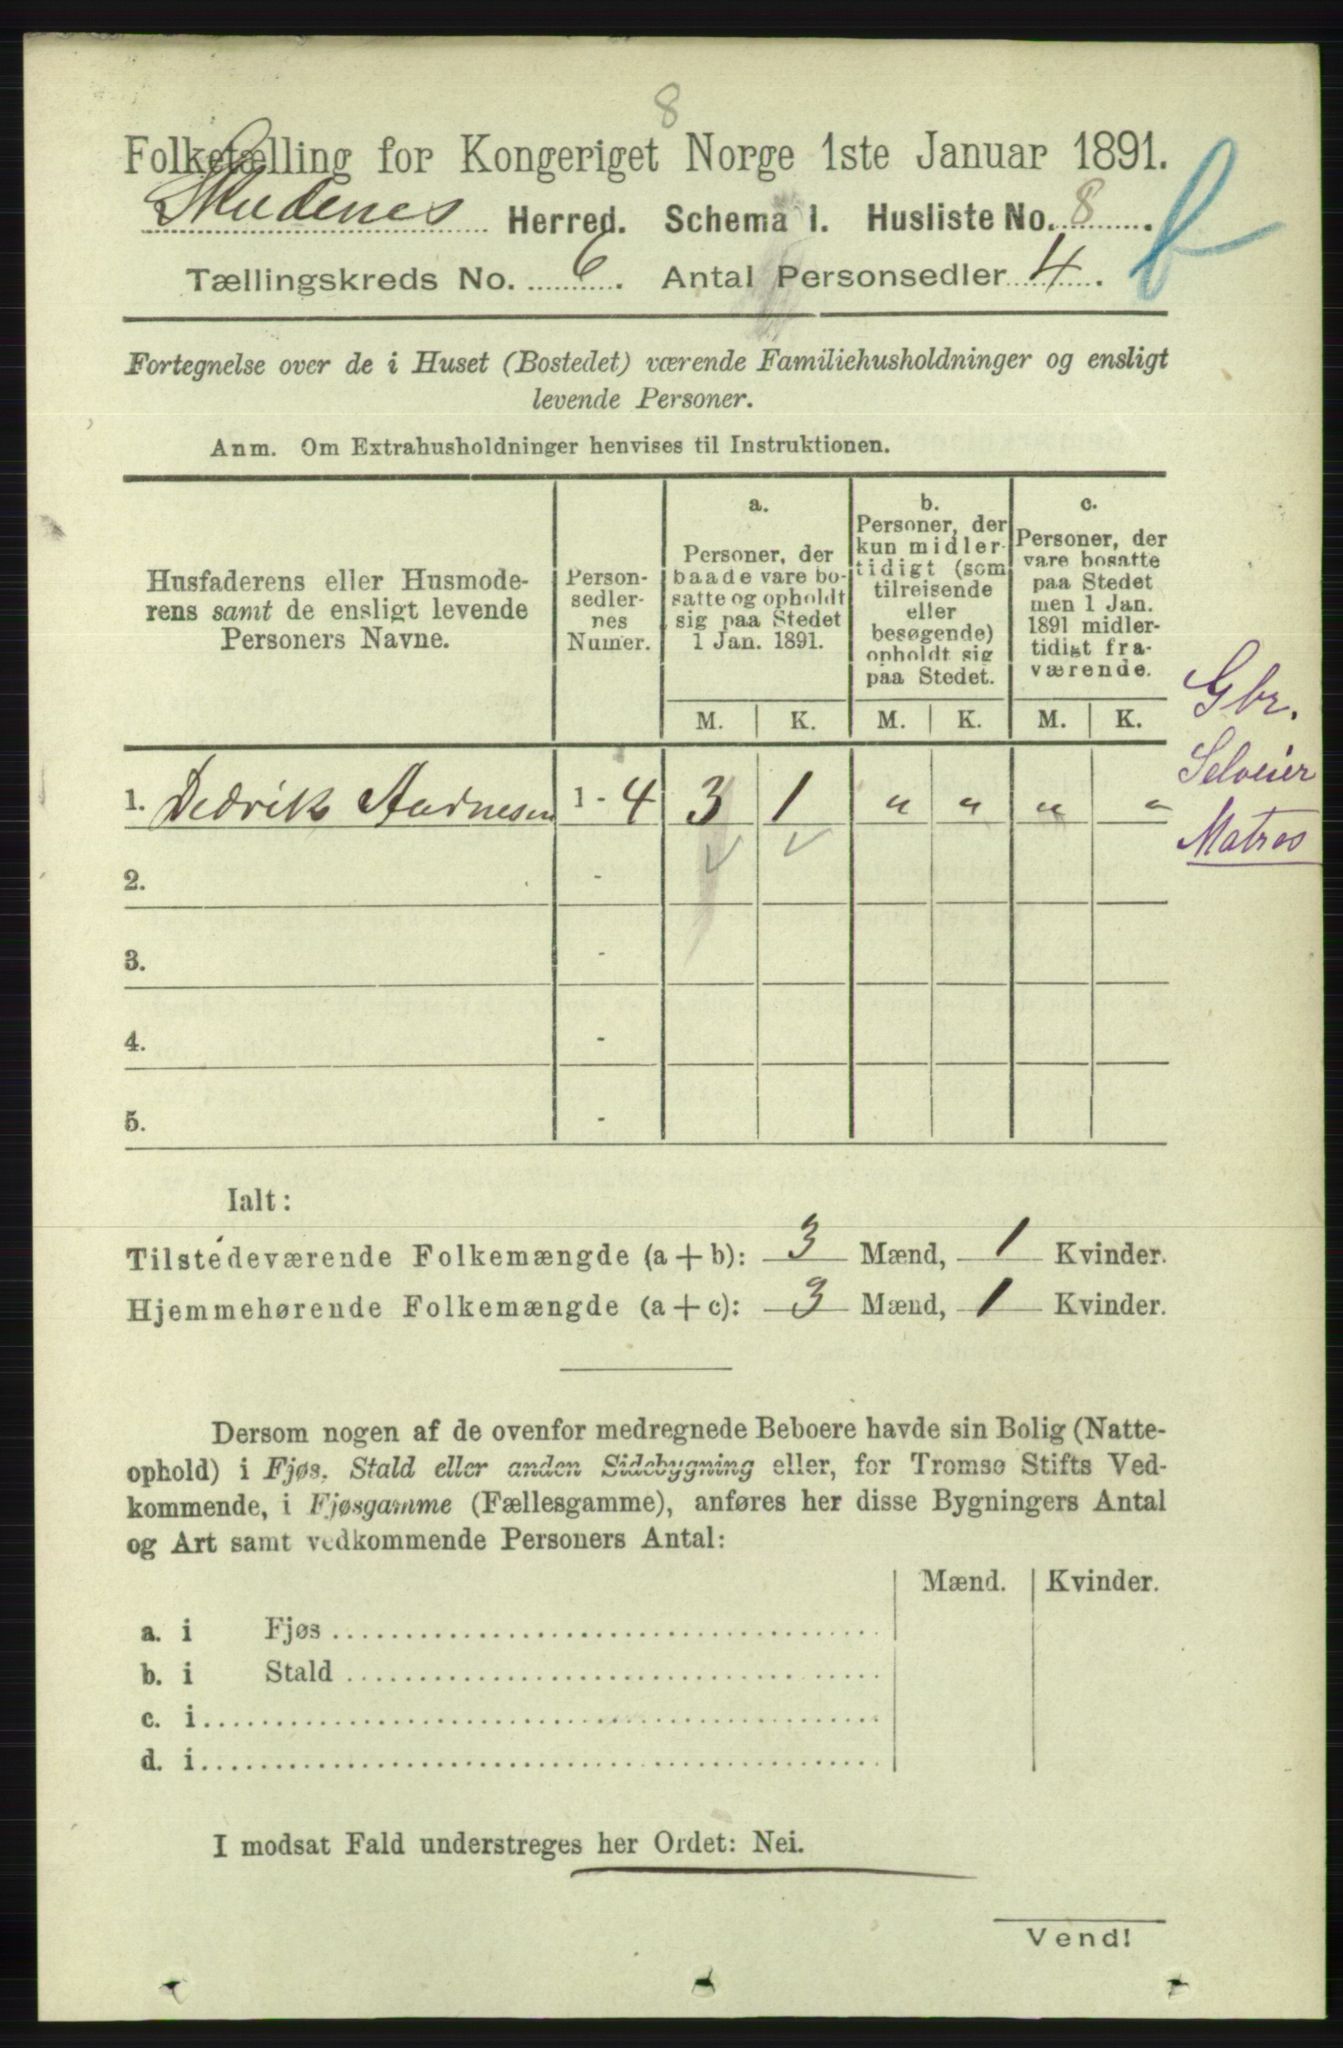 8
Folketælling for Kongeriget Norge 1ste Januar 1891.
Skudenes Herred. Schema 1. Husliste No. 8.
Tællingskreds No. 6. Antal Personsedler 4.
Fortegnelse over de i Huset (Bostedet) værende Familiehusholdninger og ensligt
levende Personer.
Anm. Om Extrahusholdninger henvises til Instruktionen.
Husfaderens eller Husmode-
rens samt de ensligt levende
Personers Navne.
Person-
sedler-
nes
Numer.
a.
Personer, der
baade vare bo-
satte og opholdt
sig paa Stedet
1 Jan. 1891.
b.
Personer, der
kun midler-
tidigt (som
tilreisende
eller
besøgende)
opholdt sig
paa Stedet.
c.
Personer, der
vare bosatte
paa Stedet
men 1 Jan.
1891 midler-
tidigt fra-
værende.
M. K. M. K. M. K.
Gbr.
Selveier
Matros
1. Didrik Aadnesen 1 - 4 3 1 " " " "
2. -
3. -
4. -
5. -
Ialt:
Tilstedeværende Folkemængde (a + b): 3 Mænd, 1 Kvinder.
Hjemmehørende Folkemængde (a + c): 3 Mænd, 1 Kvinder.
Dersom nogen af de ovenfor medregnede Beboere havde sin Bolig (Natte-
ophold) i Fjøs, Stald eller anden Sidebygning eller, for Tromsø Stifts Ved-
kommende, i Fjøsgamme (Fællesgamme), anføres her disse Bygningers Antal
og Art samt vedkommende Personers Antal:
Mænd. Kvinder.
a. i Fjøs
b. i Stald
c. i
d. i
I modsat Fald understreges her Ordet: Nei.
Vend!